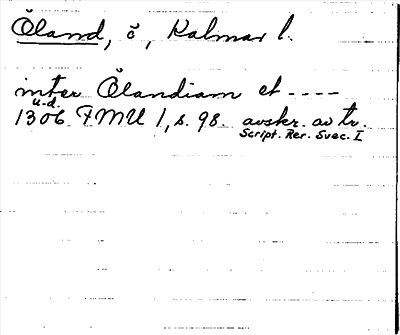 Öland, ö, Kalmar l.
inter Ölandiam et ----
u.d.
1306 FMU 1, s. 98. avskr. av tr.
Script. Rer. Svec. I